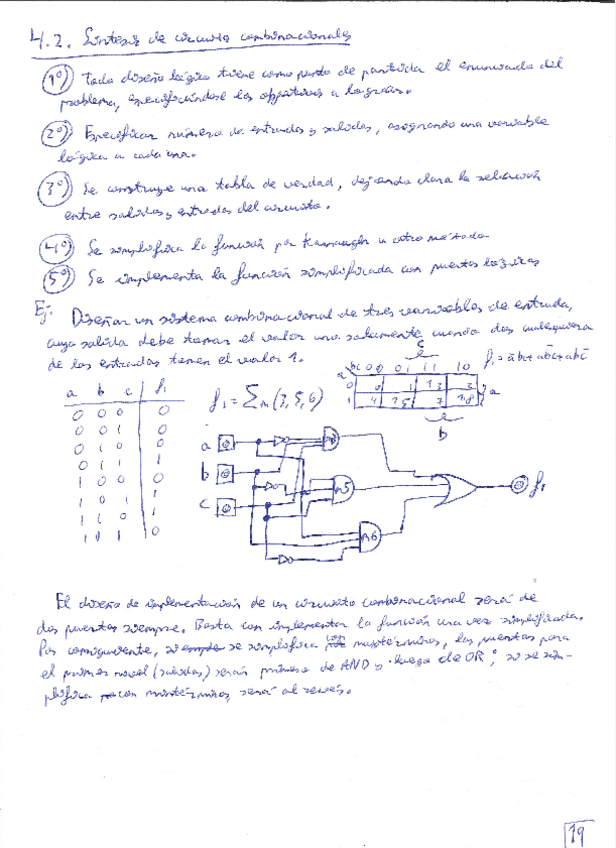 4.2. Síntesis de circuitos combinacionales
1º) Todo diseño lógico tiene como punto de partida el enunciado del
problema, especificándose los objetivos a lograr.
2º) Especificar número de entradas y salidas, asignando una variable
lógica a cada una.
3º) Se construye una tabla de verdad, dejando clara la relación
entre salidas y entradas del circuito.
4º) Se simplifica la función por Karnaugh u otro método
5º) Se implementa la función simplificada con puertas lógicas
Ej: Diseñar un sistema combinacional de tres variables de entrada,
cuya salida debe tomar el valor uno solamente cuando dos cualquiera
de las entradas tomen el valor 1.
a b c f₁
0 0 0 0
0 0 1 0
0 1 0 0
0 1 1 1
1 0 0 0
1 0 1 1
1 1 0 1
1 1 1 0
f₁ = Σm (3, 5, 6)
c
a bc 00 01 11 10
0 0 1 1 3 2
1 4 1 5 7 1
a
b
f₁ = ābc + ab̄c + abc̄
a
b
c
5
6
f₁
El diseño de implementación de un circuito combinacional será de
dos puertas siempre. Basta con implementar la función una vez simplificada.
Por consiguiente, se simplifica con maxtérminos, las puertas para
el primer nivel (salidas) serán primero de AND y luego de OR; si se sim-
plifica con mintérminos, será al revés.
19